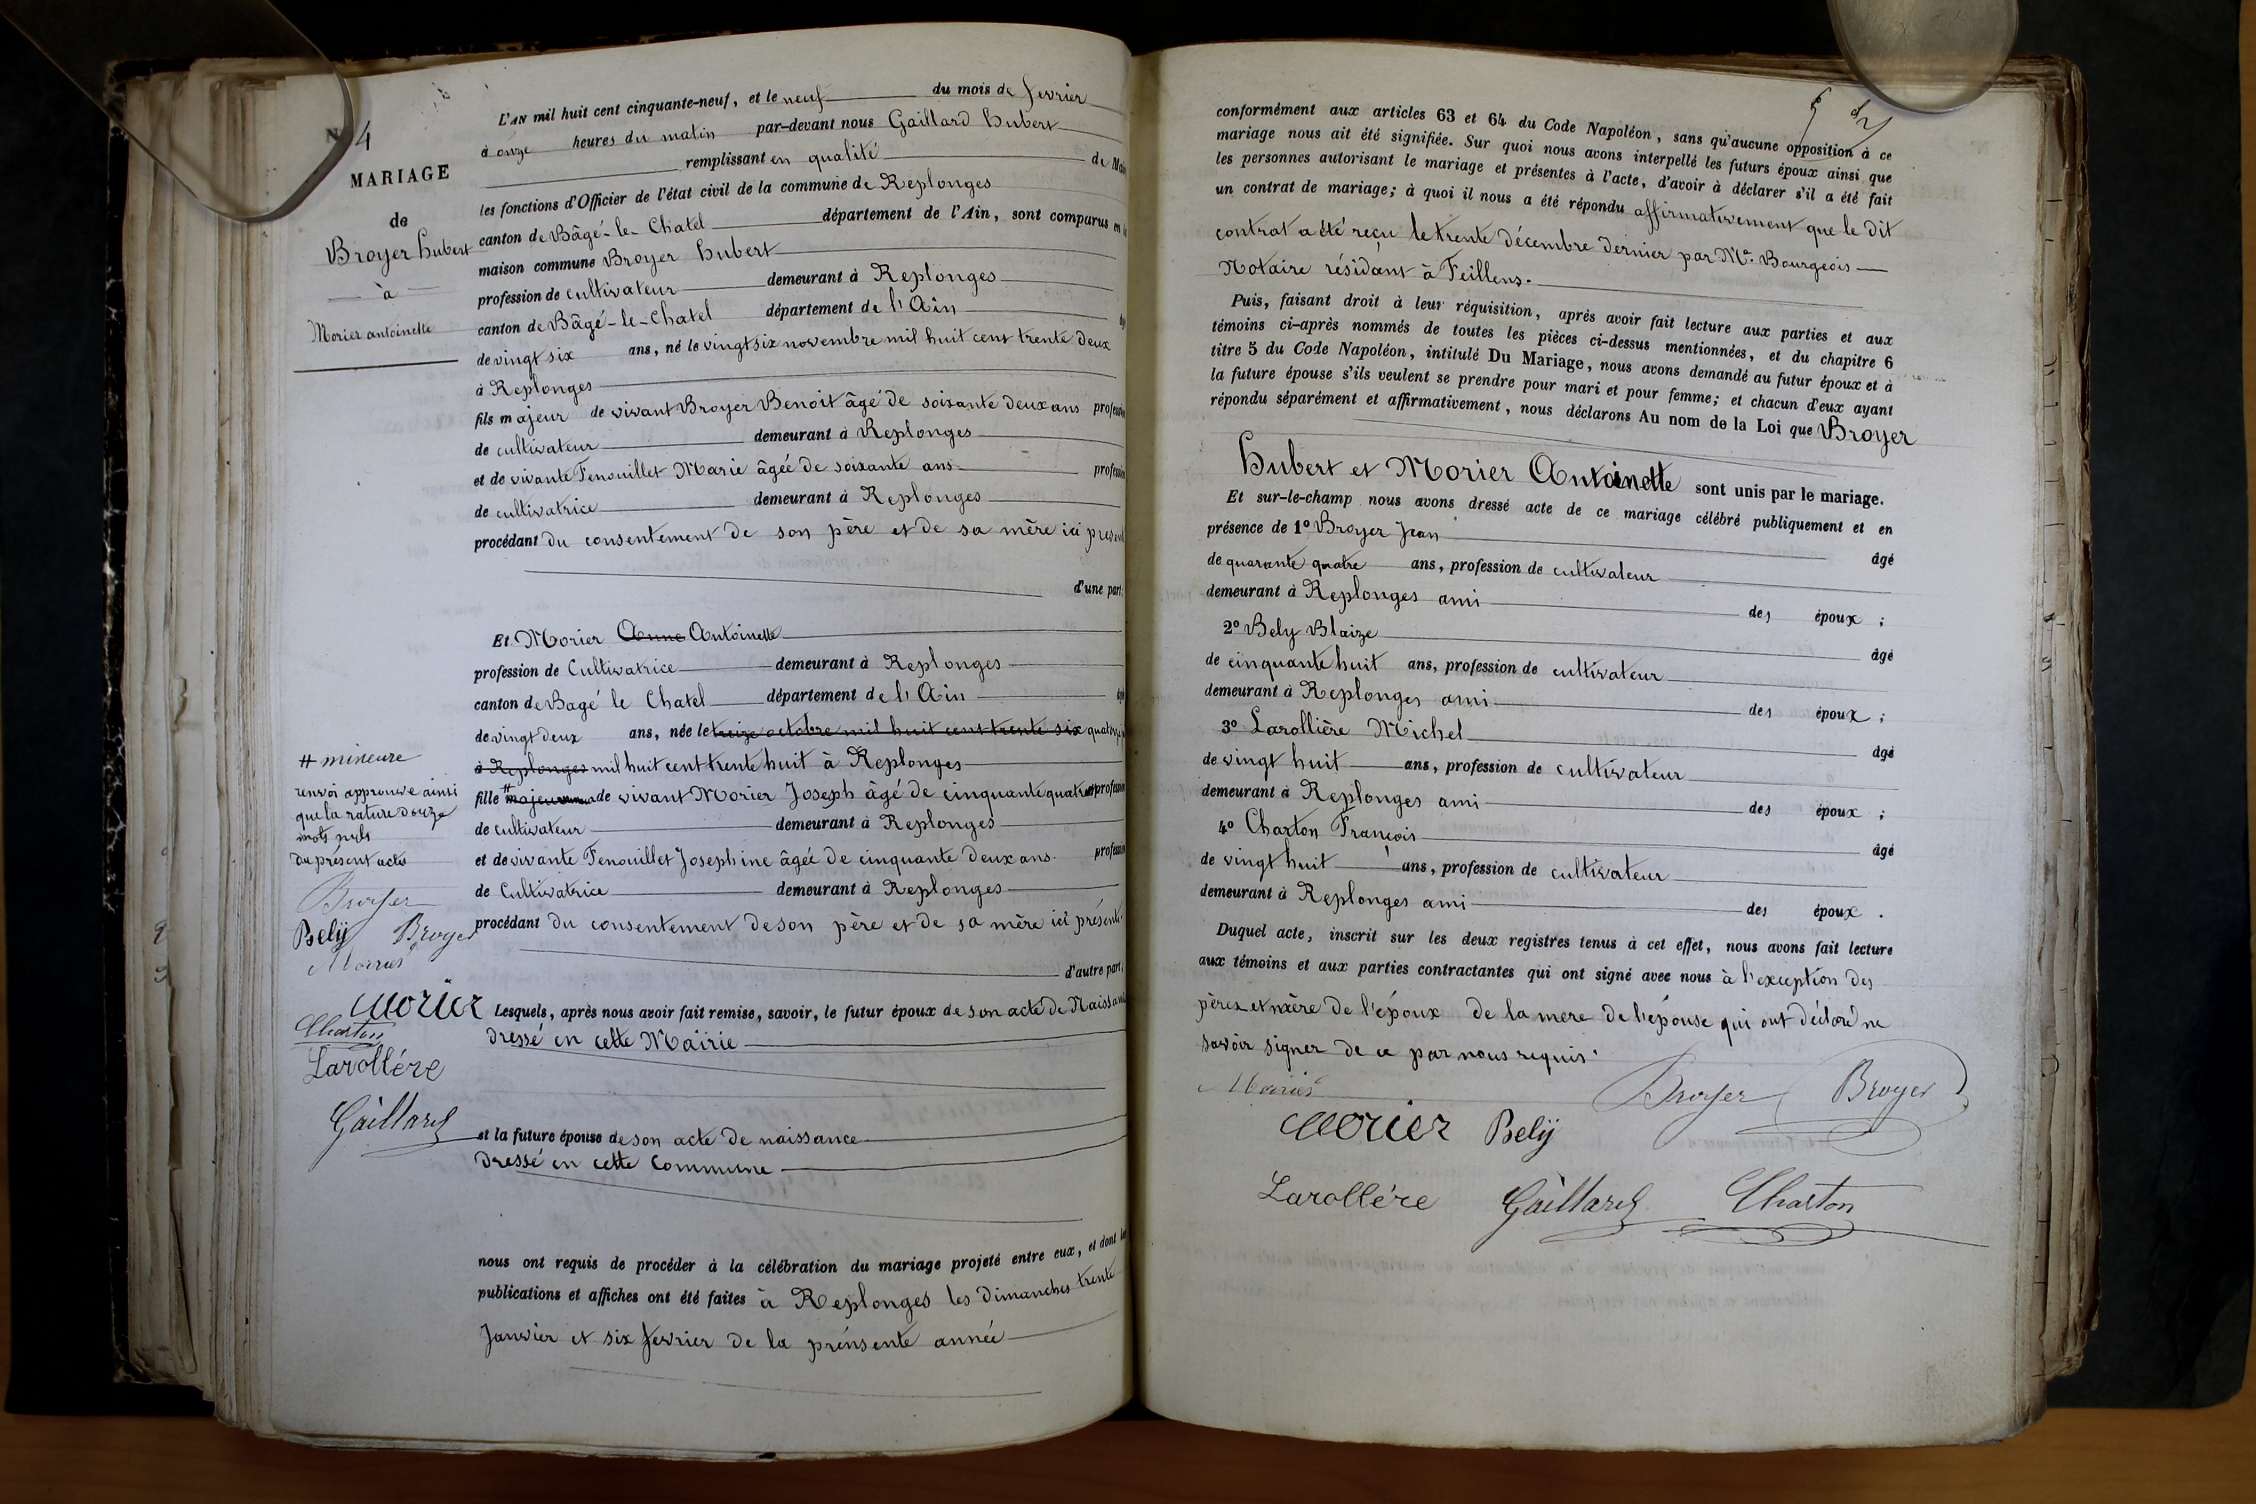 N 4
MARIAGE
de
Broyer hubert
à
Morier antoinette
L'AN mil huit cent cinquante-neuf, et le neuf du mois de fevrier
à onze heures du matin par-devant nous Gaillard hubert
remplissant en qualité de
les fonctions d'Officier de l'état civil de la commune de Replonges
canton de Bâgé-le-Chatel département de l'Ain, sont comparus en
maison commune Broyer hubert
profession de cultivateur demeurant à Replonges
canton de Bâgé-le-Chatel département de l'Ain
de vingt six ans, né le vingt six novembre mil huit cent trente deux
à Replonges
fils majeur de vivant Broyer Benoit âgé de soixante deux ans profession
de cultivateur demeurant à Replonges
et de vivante Fenouillet Marie âgée de soixante ans profession
de cultivatrice demeurant à Replonges
procédant du consentement de son père et de sa mère ici present
d'une part;
Et Morier Anne Antoinette
profession de Cultivatrice demeurant à Replonges
canton de Bagé le Chatel département de l'Ain
de vingt deux ans, née le treize octobre mil huit cent trente six
à Replonges mil huit cent trente huit à Replonges
fille # majeure de vivant Morier Joseph âgé de cinquante quatre profession
de cultivateur demeurant à Replonges
et de vivante Fenouillet Josephine âgée de cinquante deux ans. profession
de Cultivatrice demeurant à Replonges
procédant du consentement de son père et de sa mère ici présents
d'autre part;
# mineure
renvoi approuvé ainsi
que la rature douze
mots nuls
du présent acte
Broyer
Bely Broyer
Morier
Charton
Larollére
Gaillard
Lesquels, après nous avoir fait remise, savoir, le futur époux de son acte de Naissance
dressé en cette Mairie
et la future épouse de son acte de naissance
dressé en cette Commune
nous ont requis de procéder à la célébration du mariage projeté entre eux, et dont les
publications et affiches ont été faites à Replonges les dimanches trente
Janvier et six fevrier de la prénsente année
conformément aux articles 63 et 64 du Code Napoléon, sans qu'aucune opposition à ce
mariage nous ait été signifiée. Sur quoi nous avons interpellé les futurs époux ainsi que
les personnes autorisant le mariage et présentes à l'acte, d'avoir à déclarer s'il a été fait
un contrat de mariage; à quoi il nous a été répondu affirmativement que le dit
contrat a été reçu le trente décembre dernier par Me. Bourgeois
Notaire résidant à Feillens.
Puis, faisant droit à leur réquisition, après avoir fait lecture aux parties et aux
témoins ci-après nommés de toutes les pièces ci-dessus mentionnées, et du chapitre 6
titre 5 du Code Napoléon, intitulé Du Mariage, nous avons demandé au futur époux et à
la future épouse s'ils veulent se prendre pour mari et pour femme; et chacun d'eux ayant
répondu séparément et affirmativement, nous déclarons Au nom de la Loi que Broyer
hubert et Morier Antoinette sont unis par le mariage.
Et sur-le-champ nous avons dressé acte de ce mariage célébré publiquement et en
présence de 1º Broyer Jean âgé
de quarante quatre ans, profession de cultivateur
demeurant à Replonges ami des époux ;
2º Bely Blaize âgé
de cinquante huit ans, profession de cultivateur
demeurant à Replonges ami des époux ;
3º Larollière Michel âgé
de vingt huit ans, profession de cultivateur
demeurant à Replonges ami des époux ;
4º Charton François âgé
de vingt huit ans, profession de cultivateur
demeurant à Replonges ami des époux .
Duquel acte, inscrit sur les deux registres tenus à cet effet, nous avons fait lecture
aux témoins et aux parties contractantes qui ont signé avec nous à l'exception des
pères et mère de l'époux de la mere de l'épouse qui ont déclaré ne
savoir signer de ce par nous requis.
Broyer Broyer
Morier Bely
Larollére Gaillard Charton